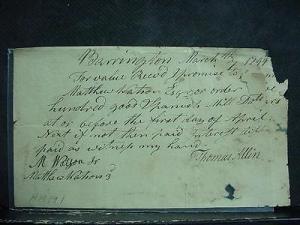 Barrington March 7th 1794
For value Recd I promise to
Matthew Watson Esqr or order
hundred good Spanish Mill'd
at or before the first day of April
Next if not then paid Interest till
paid as witness my hand
M Watson Jr
Thomas Allin
Matthew Watson 3d